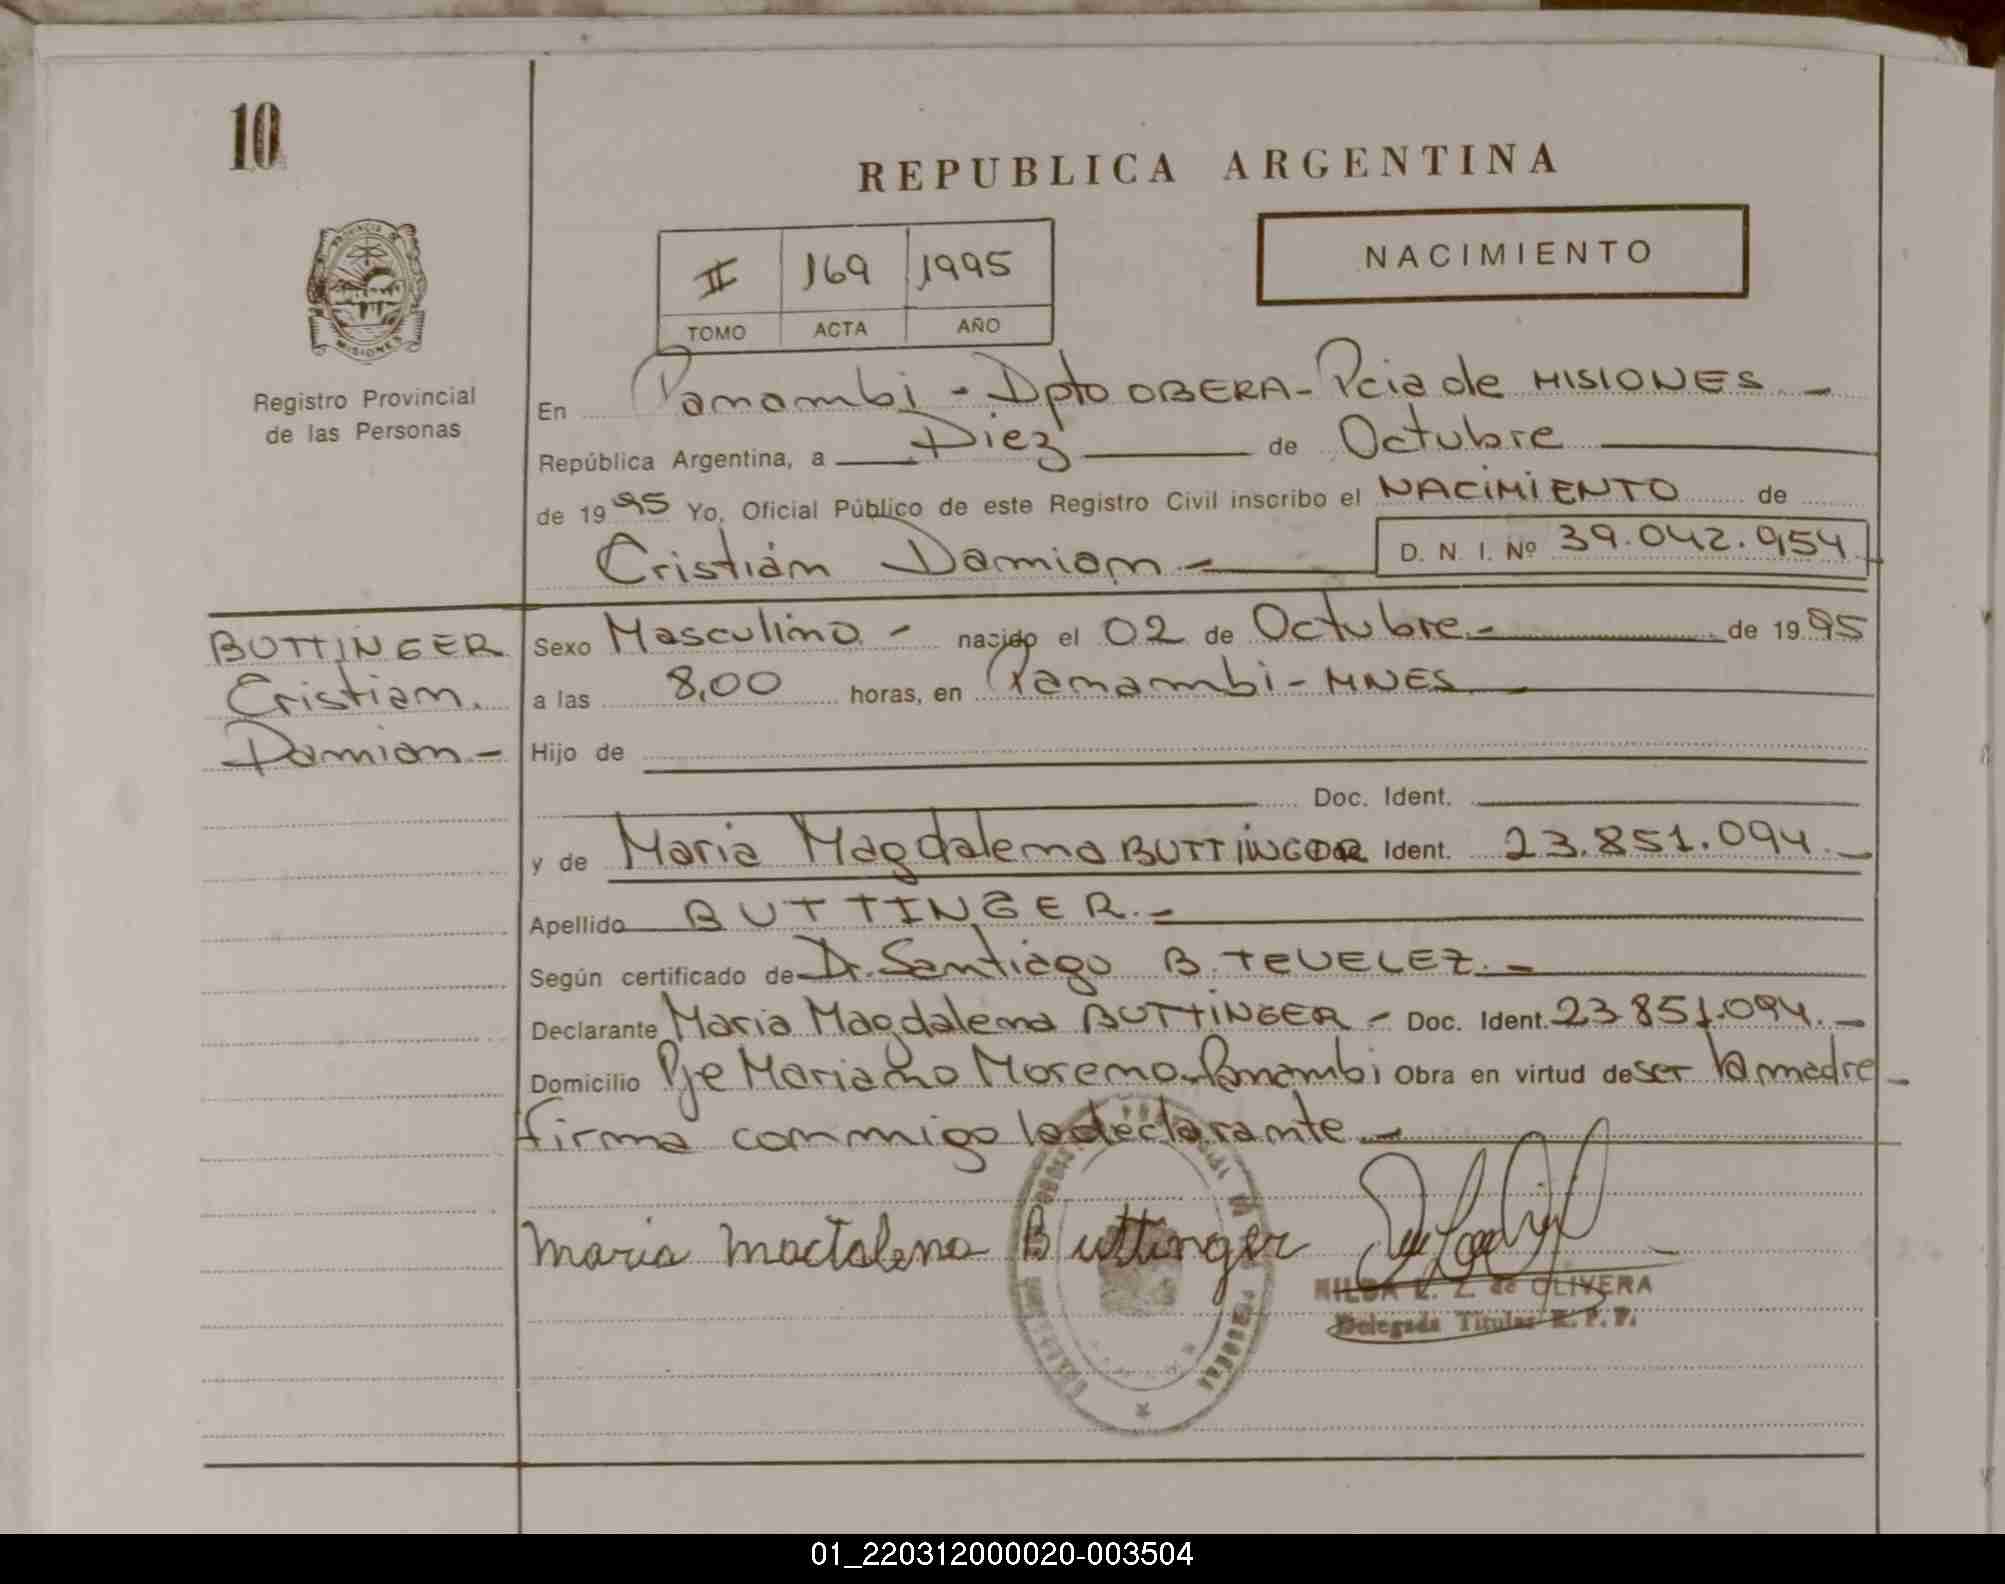 10
REPUBLICA ARGENTINA
PROVINCIA DE
MISIONES
II 169 1995
TOMO ACTA AÑO
NACIMIENTO
Registro Provincial
de las Personas
En Panambi - Dpto OBERA - Pcia de MISIONES -
República Argentina, a Diez de Octubre
de 1995 Yo, Oficial Público de este Registro Civil inscribo el NACIMIENTO de
Cristián Damian - D. N. I. Nº 39.042.954
BUTTINGER
Cristian
Damian -
Sexo Masculino - nacido el 02 de Octubre - de 1995
a las 8,00 horas, en Panambi - MNES -
Hijo de
Doc. Ident.
y de Maria Magdalena BUTTINGER Ident. 23.851.094. -
Apellido BUTTINGER. -
Según certificado de Dr. Santiago B. TEVELEZ. -
Declarante Maria Magdalena BUTTINGER - Doc. Ident. 23.851.094. -
Domicilio Pje Mariano Moreno - Panambi Obra en virtud de ser la madre -
firma conmigo la declarante -
Maria Mactalena Buttinger
HILDA E. Z. de OLIVERA
Delegada Titular R. P. P.
01_220312000020-003504